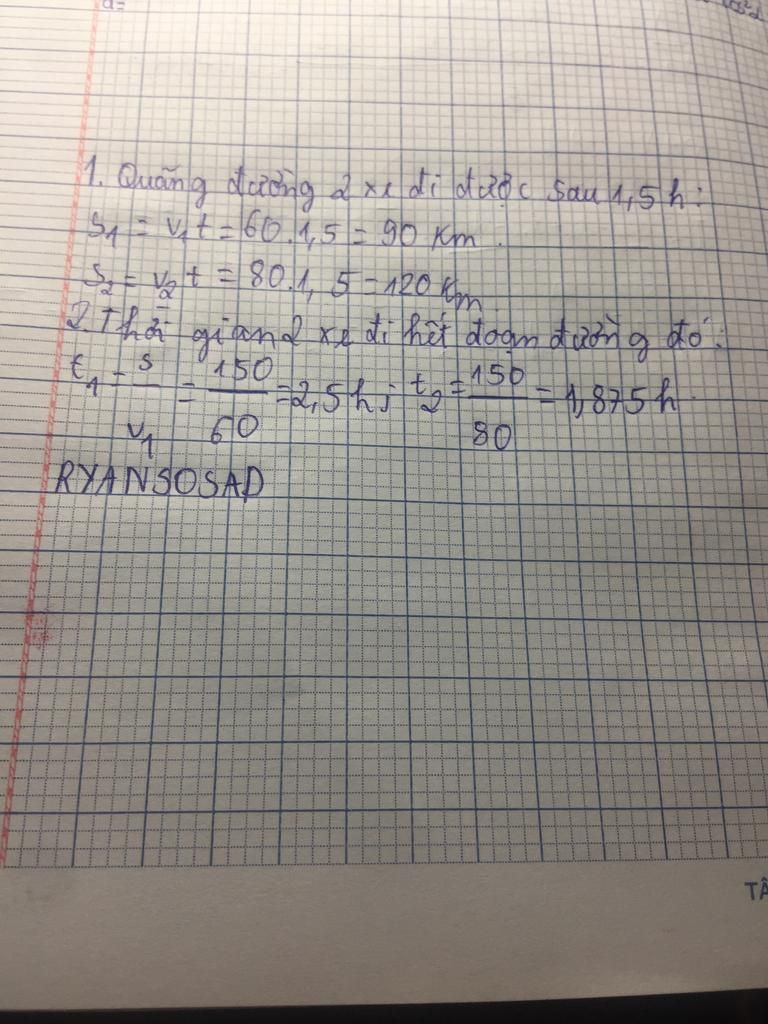 1. Quãng đường 2 xe đi được sau 1,5 h:
s1 = v1t = 60.1,5 = 90 Km.
s2 = v2t = 80.1,5 = 120 Km.
2. Thời gian 2 xe đi hết đoạn đường đó:
t1 = s/v1 = 150/60 = 2,5 h; t2 = 150/80 = 1,875 h.
RYANSOSAD
TÂ